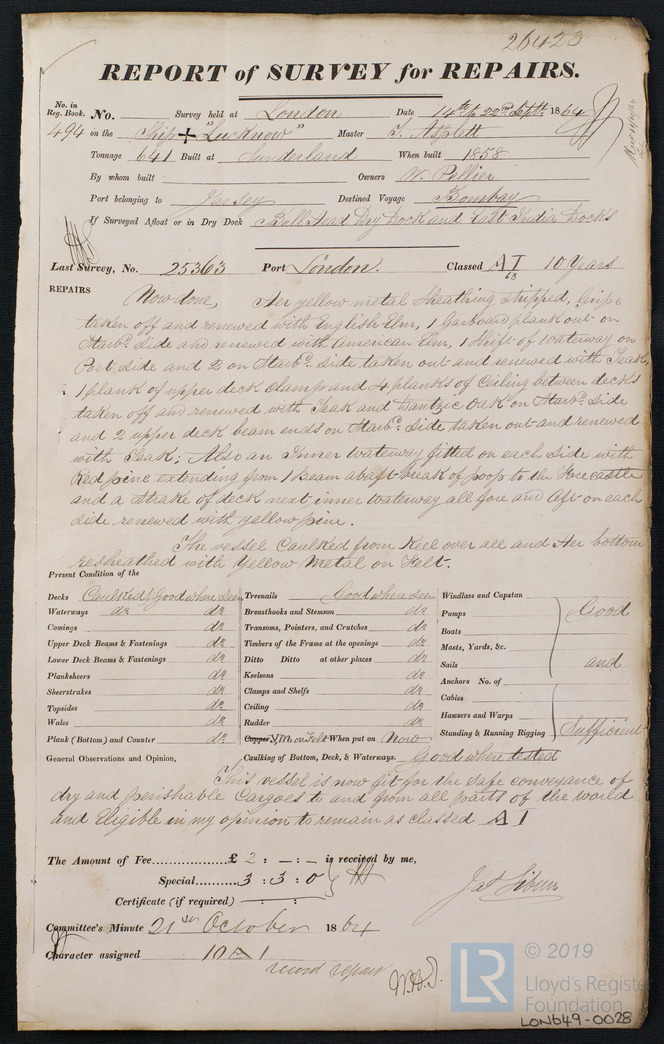 26423
REPORT of SURVEY for REPAIRS.
No. in Reg. Book. No. Survey held at London Date 14th to 22nd Septr. 1864
494 on the Ship + "Lucknow" Master
Tonnage 641 Built at Sunderland When built 1858
By whom built Owners W. Pellier
Port belonging to Jersey Destined Voyage Bombay
If Surveyed Afloat or in Dry Dock Bell Head Dry Dock and East India Docks
Last Survey, No. 25363 Port London. Classed A I 10 Years
63
REPAIRS
Now done, Her yellow metal sheathing stripped, Gripe
taken off and renewed with English Elm, 1 Garboard plank out on
Starbd. side and renewed with American Elm, 1 shift of waterway on
Port side and 2 on Starbd. side taken out and renewed with Teak,
1 plank of upper deck clamp and 4 planks of Ceiling between decks
taken off and renewed with Teak and Dantzic Oak on Starbd. side
and 2 upper deck beam ends on Starbd. side taken out and renewed
with Teak; Also an Inner waterway fitted on each side with
Red pine extending from 1 beam abaft break of poop to the Forecastle
and a strake of deck next inner waterway all fore and aft on each
side renewed with yellow pine.
The vessel Caulked from Keel over all and Her bottom
resheathed with Yellow Metal on Felt.
Present Condition of the
Decks Caulked & Good where seen Treenails Good where seen Windlass and Capstan
Waterways do do Breasthooks and Stemson do Pumps Good
Comings do Transoms, Pointers, and Crutches do Boats
Upper Deck Beams & Fastenings do Timbers of the Frame at the openings do Masts, Yards, &c.
Lower Deck Beams & Fastenings do Ditto Ditto at other places do Sails and
Planksheers do Keelsons do Anchors No. of
Sheerstrakes do Clamps and Shelfs do Cables
Topsides do Ceiling do Hawsers and Warps
Wales do Rudder do Standing & Running Rigging Sufficient
Plank (Bottom) and Counter do Copper Y.M. on Felt When put on Now
General Observations and Opinion, Caulking of Bottom, Deck, & Waterways. Good where tested
This vessel is now fit for the safe conveyance of
dry and perishable Cargoes to and from all parts of the world
and Eligible in my opinion to remain as classed A 1
The Amount of Fee £ 2 : - : - is received by me,
Special 3 : 3 : 0
Certificate (if required)
Committee's Minute 21st October 1864
Character assigned 10 A 1
record repair
© 2019
LR
Lloyd's Register
Foundation
LON649-0028